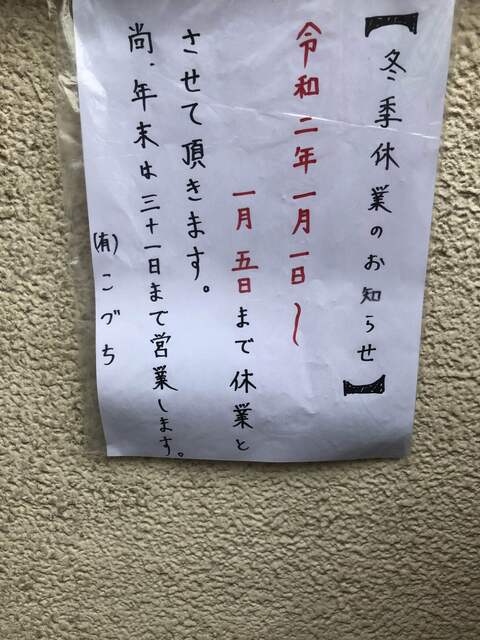 【冬季休業のお知らせ】
令和二年一月一日～
一月五日まで休業と
させて頂きます。
尚、年末は三十一日まで営業します。
(有)こづち